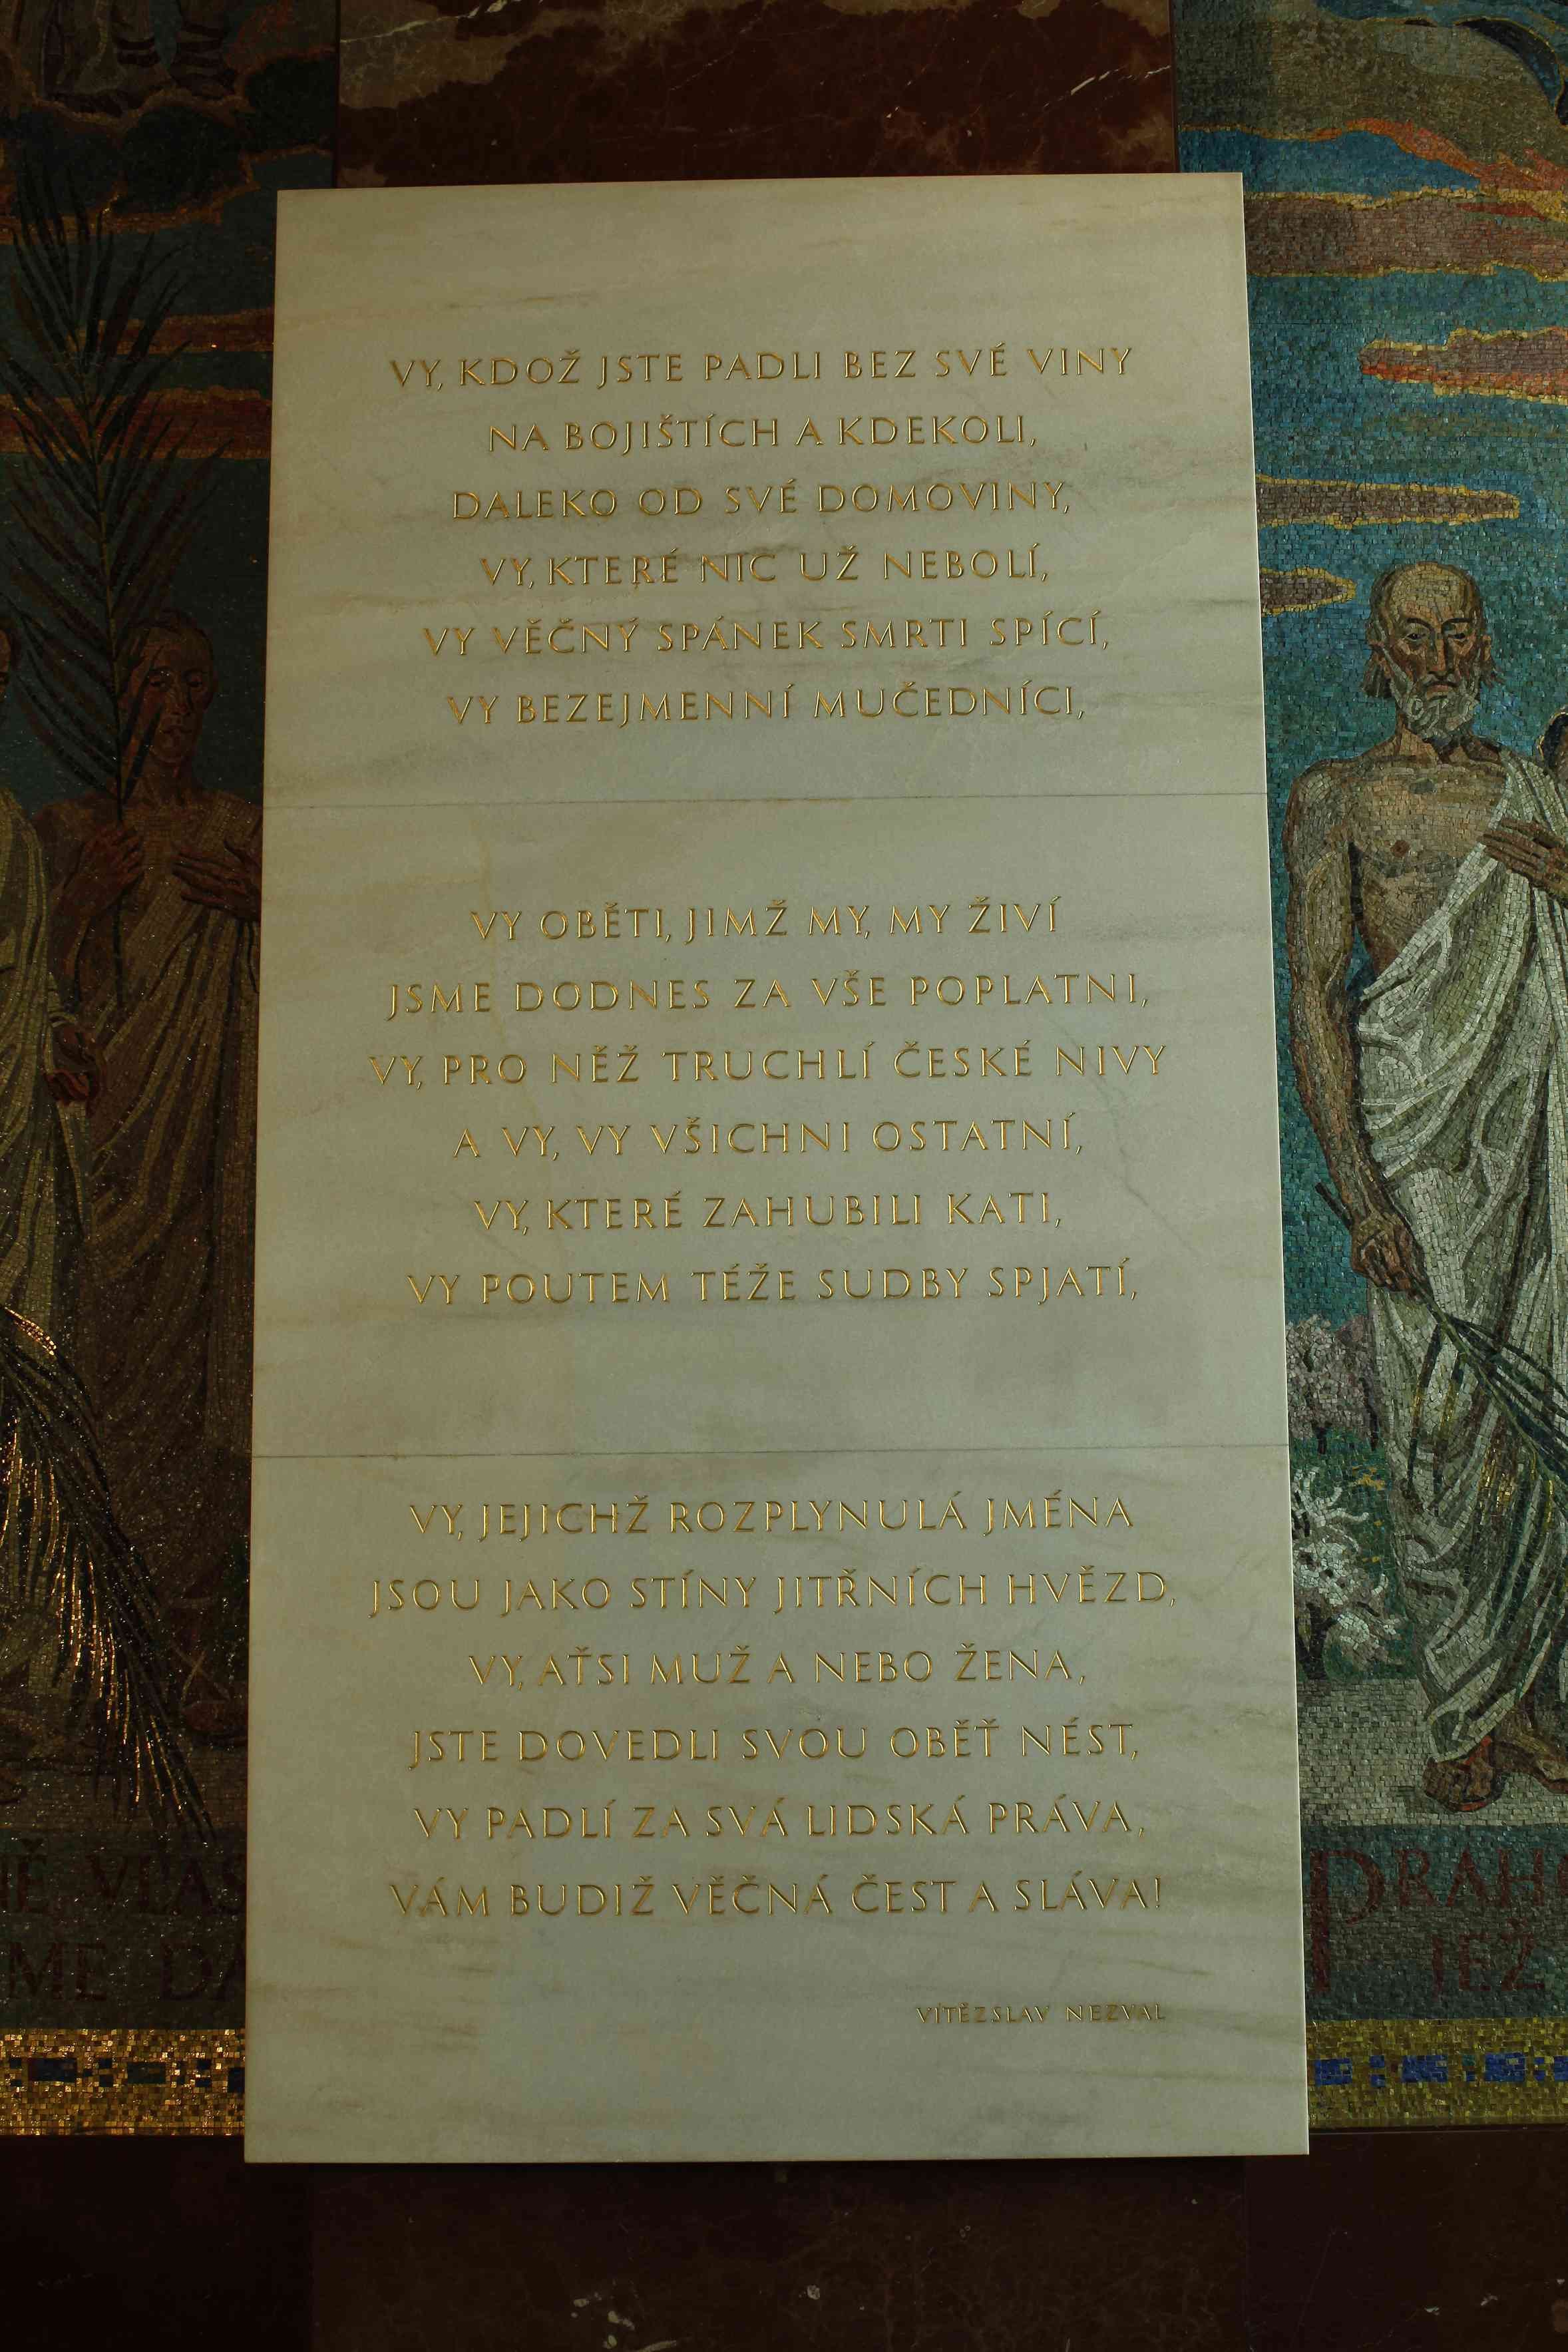 VY, KDOŽ JSTE PADLI BEZ SVÉ VINY
NA BOJIŠTÍCH A KDEKOLI,
DALEKO OD SVÉ DOMOVINY,
VY, KTERÉ NIC UŽ NEBOLÍ,
VY VĚČNÝ SPÁNEK SMRTI SPÍCÍ,
VY BEZEJMENNÍ MUČEDNÍCI,
VY OBĚTI, JIMŽ MY, MY ŽIVÍ
JSME DODNES ZA VŠE POPLATNI,
VY, PRO NĚŽ TRUCHLÍ ČESKÉ NIVY
A VY, VY VŠICHNI OSTATNÍ,
VY, KTERÉ ZAHUBILI KATI,
VY POUTEM TÉŽE SUDBY SPJATÍ,
VY, JEJICHŽ ROZPLYNULÁ JMÉNA
JSOU JAKO STÍNY JITŘNÍCH HVĚZD,
VY, AŤSI MUŽ A NEBO ŽENA,
JSTE DOVEDLI SVOU OBĚŤ NÉST,
VY PADLÍ ZA SVÁ LIDSKÁ PRÁVA,
VÁM BUDIŽ VĚČNÁ ČEST A SLÁVA!
VÍTĚZSLAV NEZVAL
DRAH
JEŽ